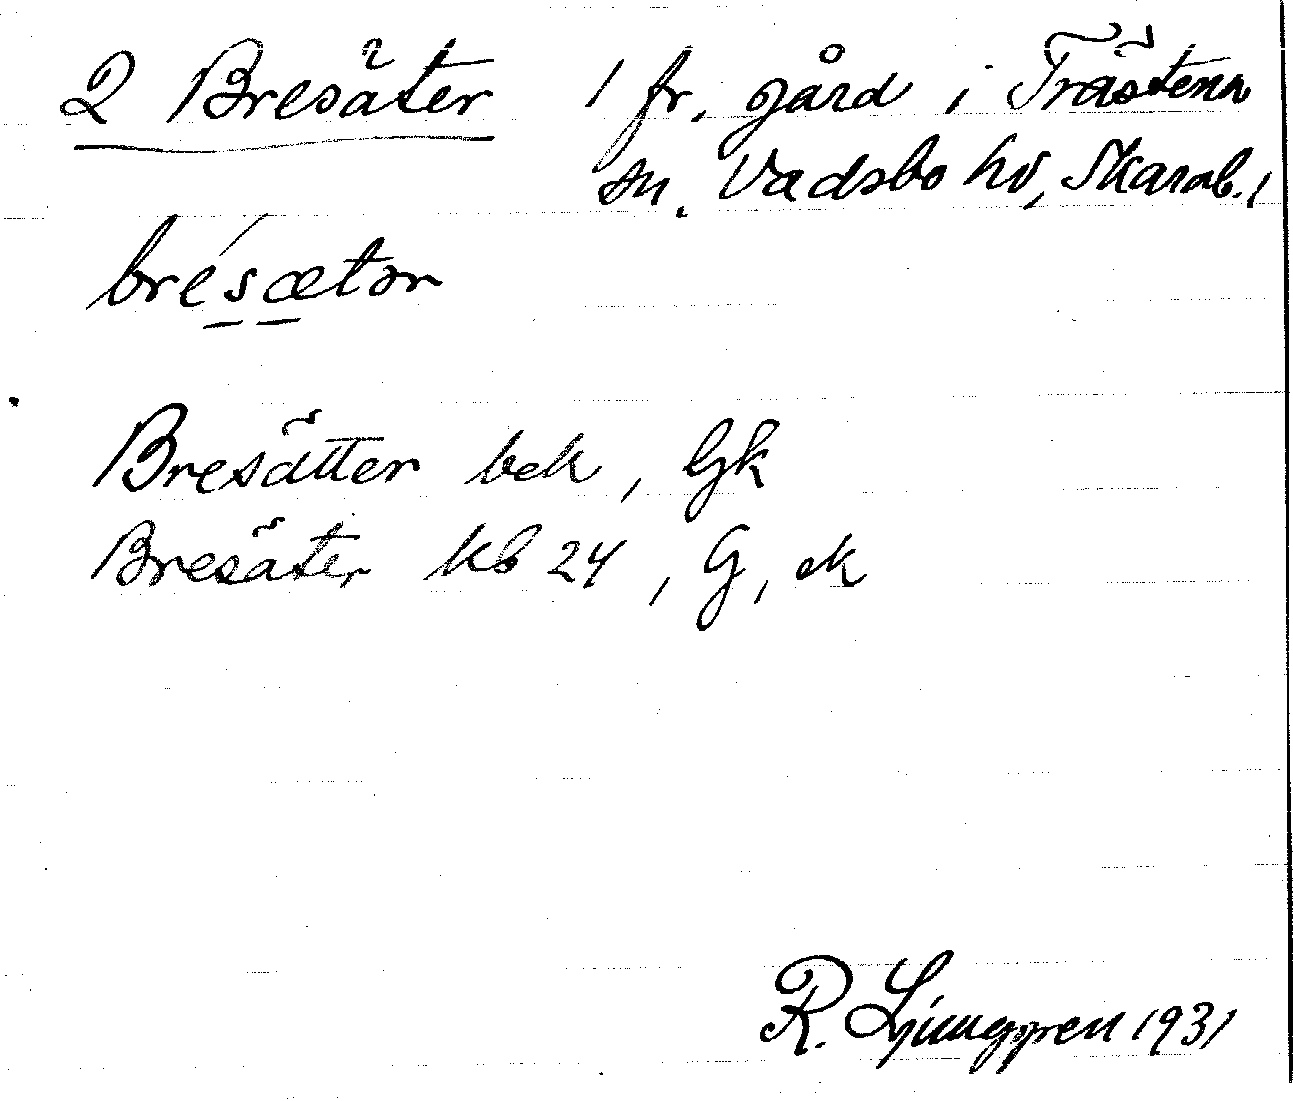 2 Bresäter / fr. gård i Trästena
sn. Vadsbo hd, Skarab. /
brésætər
Bresätter bek, Gk
Bresäter kb 24, G, ek
R. Ljunggren 1931